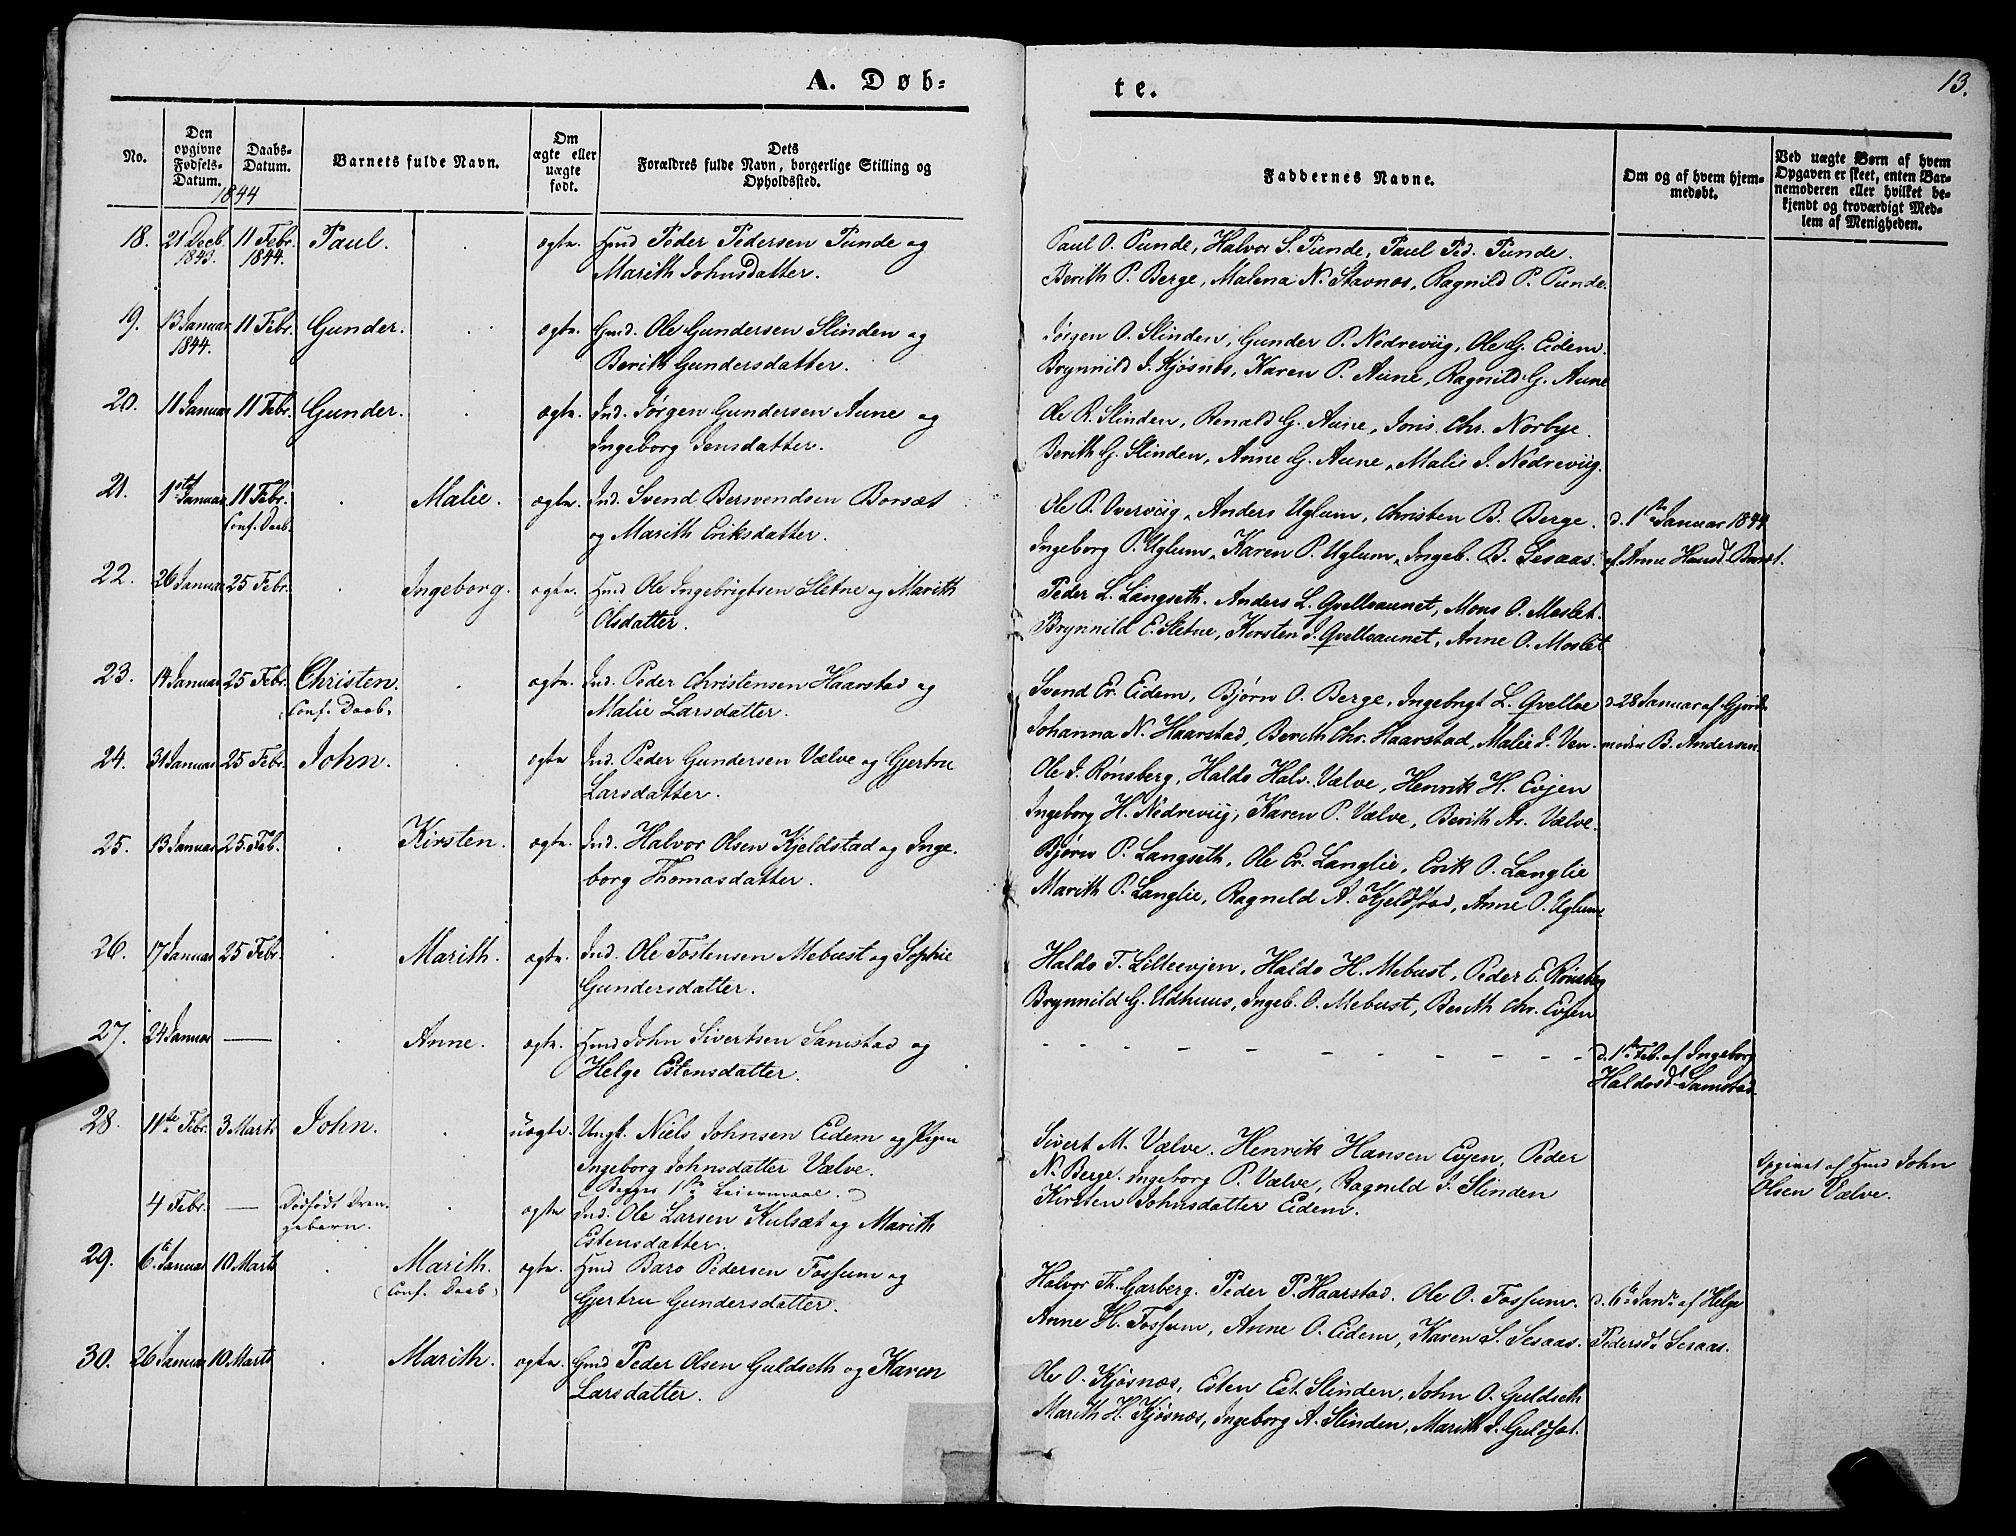 A. Døb-
te.
13.
No.
Den opgivne Fødsels-Datum.
Daabs-Datum.
Barnets fulde Navn.
Om ægte eller uægte født.
Dets Forældres fulde Navn, borgerlige Stilling og Opholdssted.
Faddernes Navne.
Om og af hvem hjem-medøbt.
Ved uægte Børn af hvem Opgaven er skeet, enten Bar-nemoderen eller hvilket be-kjendt og troværdigt Med-lem af Menigheden.
1844
18. 21 Decb. 1843. 11 Febr. 1844. Paul. ægte. Hmd Peder Pedersen Tunde og
Marith Johnsdatter.
Paul O. Tunde, Halvor S. Tunde, Paul Ped. Tunde.
Berith P. Berge, Malena N. Stavnos, Ragnild P. Tunde.
19. 13 Januar 1844. 11 Febr. Gunder. ægte. Hmd. Ole Gundersen Slinden og
Berith Gundersdatter.
Jørgen O. Slinden, Gunder P. Nedreviig, Ole G. Eidem.
Brynnild J. Kjøsnæs, Karen P. Aune, Ragnild G. Aune
20. 11 Januar 11 Febr. Gunder. ægte. Ind. Jørgen Gundersen Aune og
Ingeborg Jensdatter.
Ole R. Slinden, Renald G. Aune, Joris Chr. Norbye.
Berith G. Slinden, Anne G. Aune, Malie J. Nedreviig.
21. 1ste Januar 11 Febr. Conf. Daab. Malie. ægte. Ind. Svend Berwendsen Borsæt
og Marith Eriksdatter.
Ole P. Overviig, Anders Uglum, Christen B. Berge.
Ingeborg P. Uglum, Karen P. Uglum, Ingeb. B. Sesaas.
d. 1ste Januar 1844
af Anne Hansd.
22. 26 Januar 25 Febr. Ingeborg. ægte. Hmd Ole Ingebrigtsen Sletne og Marith
Olsdatter.
Peder L. Langseth. Anders L. Qvelloaunet, Mons O. Moslet.
Brynnild E. Sletne, Kirsten J. Qvelloaunet, Anne O. Moslet
23. 14 Januar 25 Febr. Christen. Conf. Daab. ægte. Ind. Peder Christensen Haarstad og
Malie Larsdatter.
Svend Er. Eidem, Bjørn O. Berge, Ingebrigt L. Qvelloe
Johanna N. Haarstad, Berith Chr. Haarstad, Malie J. Ven.
d. 28 Januar af Gjord-
moder B. Andersen.
24. 31 Januar 25 Febr. John. ægte Ind. Peder Gundersen Vælve og Gjertru
Larsdatter.
Ole J. Rønsberg, Haldo Halv. Vælve, Henrik H. Evjen
Ingeborg H. Nedreviig, Karen P. Vælve, Berith Ar. Vælve.
25. 13 Januar 25 Feb. Kirsten. ægte. Ind. Halvor Olsen Kjeldstad og Inge-
borg Thomasdatter.
Bjørn P. Langseth, Ole Er. Langlie, Erik O. Langlie
Marith P. Langlie, Ragnild A. Kjeldstad, Anne P. Uglum
26. 17 Januar 25 Febr. Marith. ægte. Ind. Ole Tostensen Mebust og Sophie
Gundersdatter.
Haldo T. Lilleevjen, Haldo H. Mebust, Peder E. Rønsberg
Brynnild G. Udhuus, Ingeb. O. Mebust, Berith Chr. Evjen
27. 24 Januar — Anne. ægte. Hmd John Sivertsen Samstad og
Helge Estensdatter.
- - - - - - - - - - -
d. 1ste Feb. af Ingeborg
Haldosd. Samstad.
28. 11te Febr. 3 Marts John. uægte. Ungk. Niels Johnsen Eidem og Pigen
Ingeborg Johnsdatter Vælve.
Begges 1ste Leiermaal.
Sivert M. Vælve. Henrik Hansen Evjen, Peder
N. Berge. Ingeborg P. Vælve, Ragnild J. Slinden
Kirsten Johnsdatter Eidem.
Opgivet af Hmd John
Olsen Vælve.
4 Febr. — Dødfødt Dren-
gebarn. ægte Ind. Ole Larsen Kulsæt og Marith
Estensdatter.
29. 6te Januar 10 Marts Marith. Conf. Daab ægte. Hmd Baro Pedersen Fossum og
Gjertru Gundersdatter.
Halvor Th. Garberg. Peder P. Haarstad. Ole O. Fossum.
Anne H. Fossum, Anne O. Eidem, Karen S. Sesaas.
d. 6te Jan. af Helge
Pedersd. Sesaas.
30. 26 Januar 10 Marts Marith. ægte. Hmd Peder Olsen Guldseth og Karen
Larsdatter.
Ole O. Kjøsnæs, Esten Est. Slinden, John O. Guldseth
Marith H. Kjøsnæs, Ingeborg A. Slinden, Marith J. Guldset.